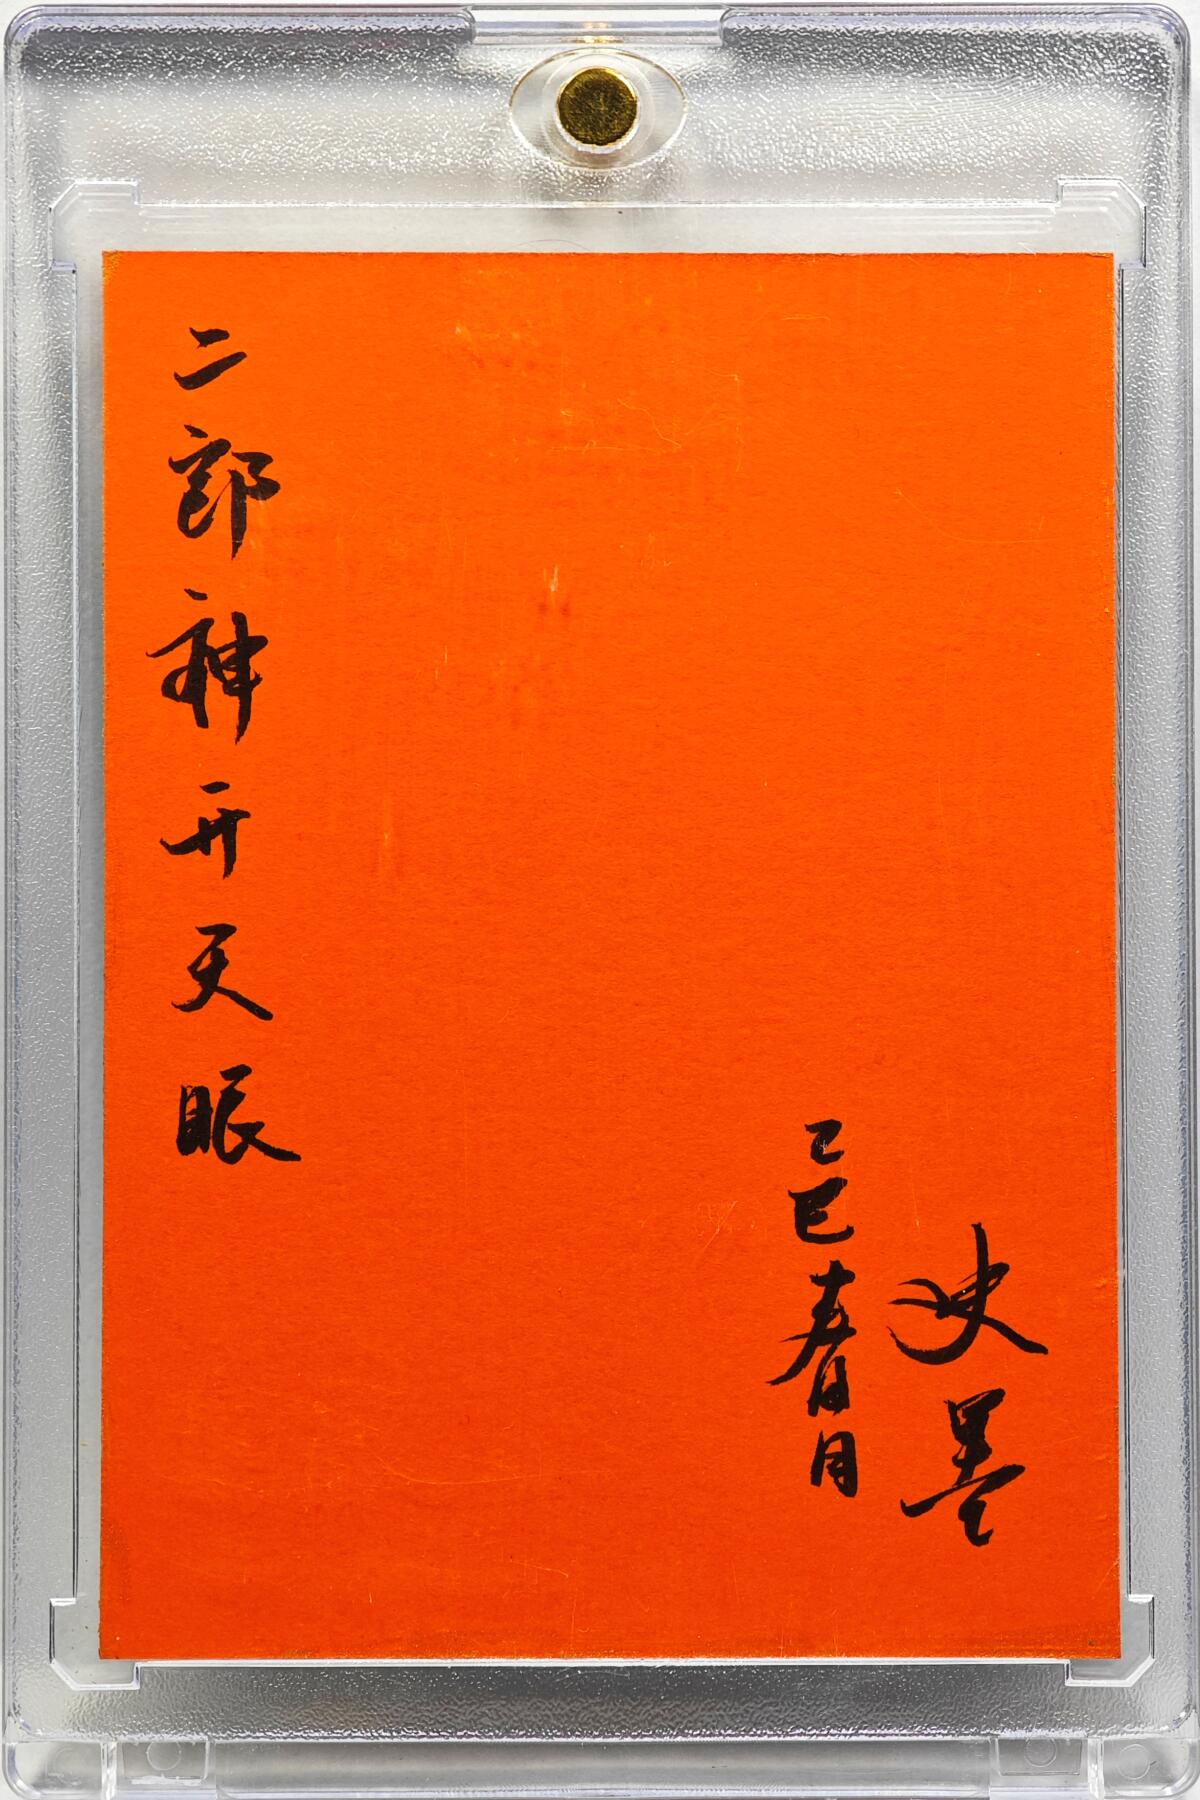 二郎神开天眼
乙巳春月
史墨